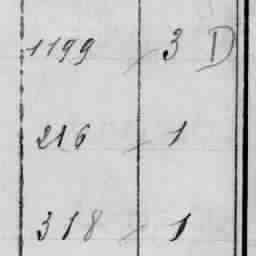 1199 3 D
216 1
318 1